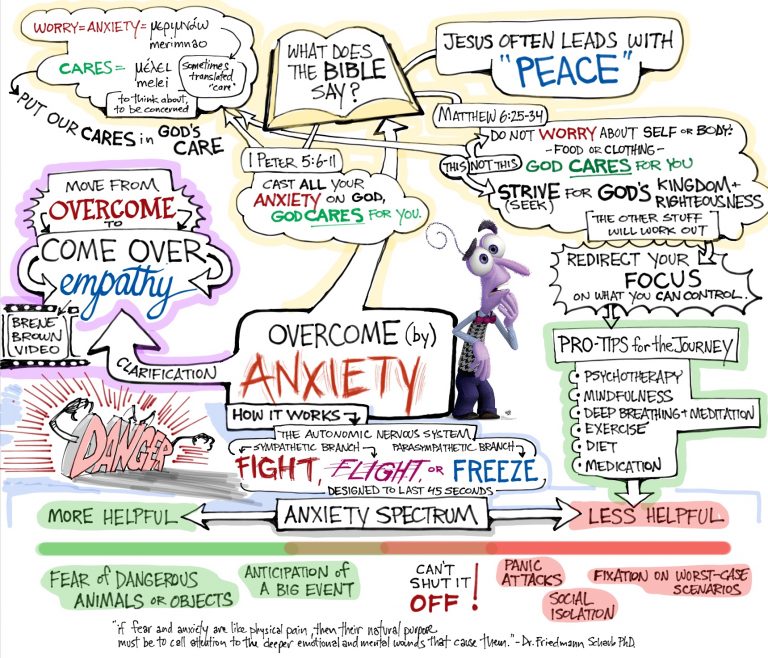 WORRY = ANXIETY = μεριμνάω
merimnao
CARES = μέλει
melei
sometimes
translated
"care"
to think about,
to be concerned
PUT OUR CARES in GOD'S
CARE
WHAT DOES
THE BIBLE
SAY?
JESUS OFTEN LEADS WITH
"PEACE"
MATTHEW 6:25-34
DO NOT WORRY ABOUT SELF or BODY?
- FOOD or CLOTHING -
THIS NOT THIS
GOD CARES FOR YOU
STRIVE FOR GOD'S KINGDOM +
(SEEK) RIGHTEOUSNESS
"THE OTHER STUFF
WILL WORK OUT"
1 PETER 5:6-11
CAST ALL YOUR
ANXIETY ON GOD,
GOD CARES FOR YOU.
MOVE FROM
OVERCOME
TO
COME OVER
empathy
BRENE
BROWN
VIDEO
CLARIFICATION
OVERCOME (by)
ANXIETY
REDIRECT YOUR
FOCUS
ON WHAT YOU CAN CONTROL.
PRO-TIPS for the JOURNEY
• PSYCHOTHERAPY
• MINDFULNESS
• DEEP BREATHING + MEDITATION
• EXERCISE
• DIET
• MEDICATION
DANGER
HOW IT WORKS
THE AUTONOMIC NERVOUS SYSTEM
SYMPATHETIC BRANCH PARASYMPATHETIC BRANCH
FIGHT, FLIGHT, or FREEZE
DESIGNED TO LAST 45 SECONDS
MORE HELPFUL ANXIETY SPECTRUM LESS HELPFUL
FEAR of DANGEROUS
ANIMALS or OBJECTS
ANTICIPATION of
A BIG EVENT
CAN'T
SHUT IT
OFF!
PANIC
ATTACKS
SOCIAL
ISOLATION
FIXATION ON WORST-CASE
SCENARIOS
"if fear and anxiety are like physical pain, then their natural purpose
must be to call attention to the deeper emotional and mental wounds that cause them." - Dr. Friedmann Schaub PhD.